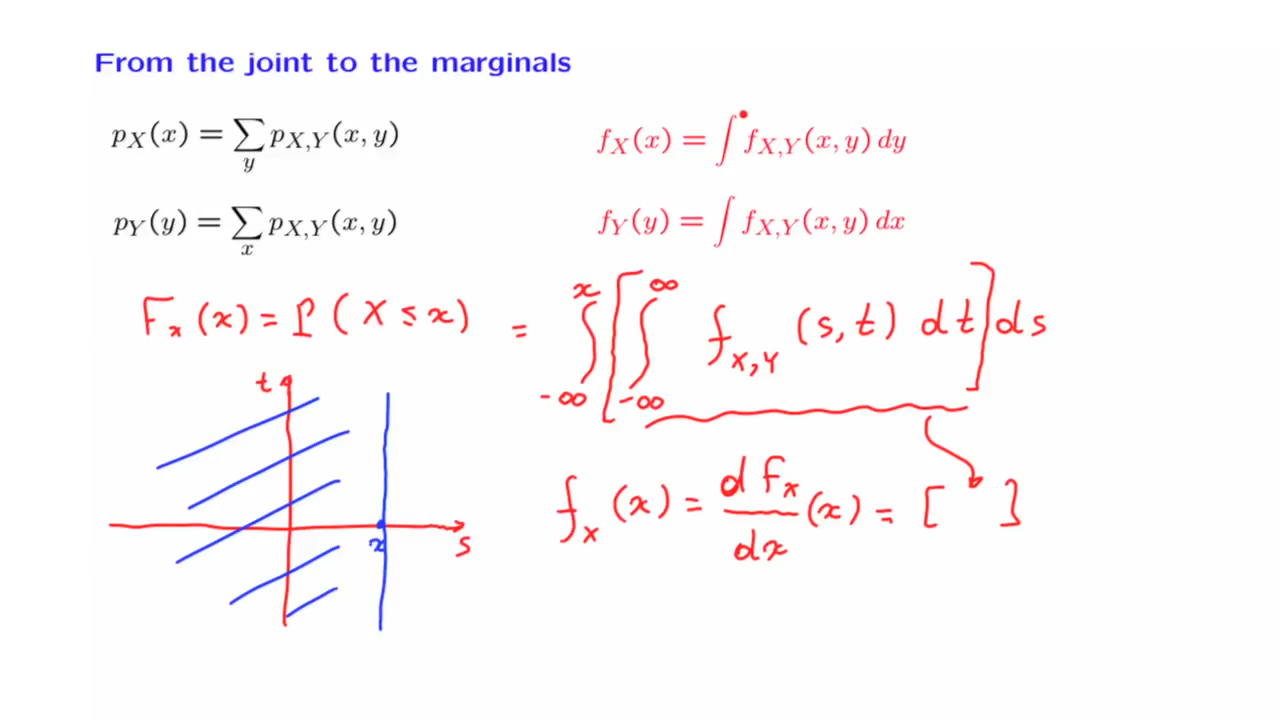 From the joint to the marginals
p_X(x) = ∑_y p_{X,Y}(x, y)
f_X(x) = ∫ f_{X,Y}(x, y) dy
p_Y(y) = ∑_x p_{X,Y}(x, y)
f_Y(y) = ∫ f_{X,Y}(x, y) dx
F_x(x) = P(X ≤ x) = ∫_{-∞}^{x} [ ∫_{-∞}^{∞} f_{X,Y}(s, t) dt ] ds
t
x
s
f_X(x) = dF_x/dx (x) = [ ]